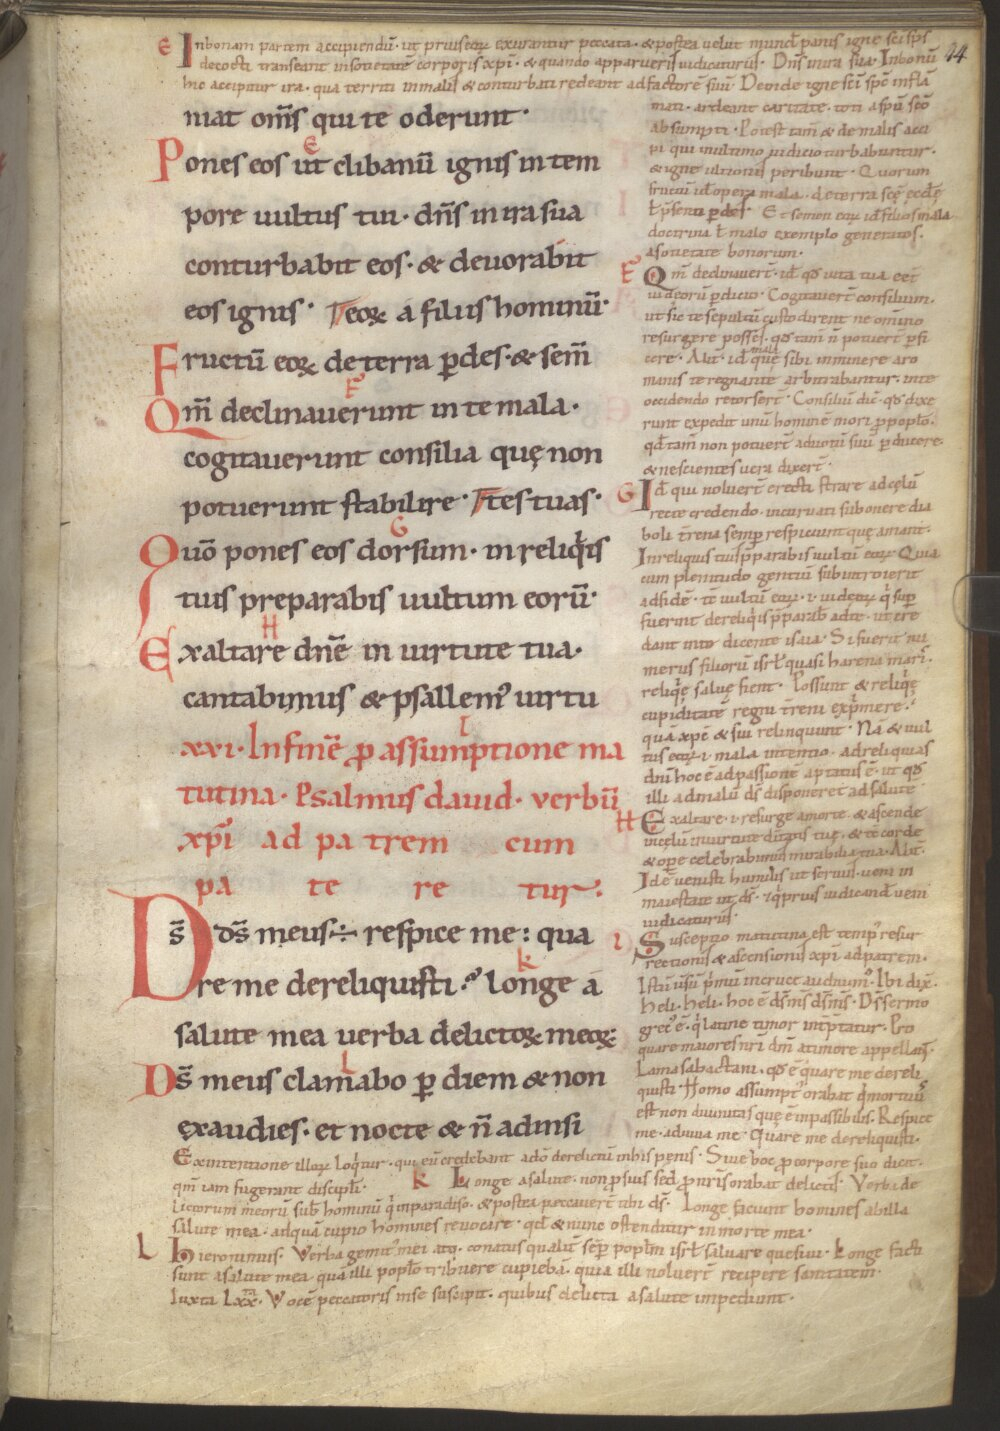 E In bonam partem accipiendū · ut prius eoꝝ exurantur peccata · & postea velut mund᷒ panis igne sc̄i sp̄s
decocti transeant in societatē corporis xp̄i · & quando apparueris iudicaturus · Dn̄s in ira sua · In bonū
hic accipitur ira · qua territi in malis & conturbati redeant ad factorē suū · Deinde igne sc̄i sp̄c inflā
24
niat om̄s qui te oderunt ·
E
Pones eos ut clibanū ignis in tem
pore uultus tui · dn̄s in ira sua
conturbabit eos · & deuorabit
eos ignis · eoꝝ a filiis hominū ·
Fructū eoꝝ de terra ꝑdes · & sem̄
F
Qm̄ declinauerunt in te mala ·
cogitauerunt consilia quę non
potuerunt stabilire · tes tuas ·
G
Quō pones eos dorsum · in reliqis
tuis preparabis uultum eorū ·
H
Exaltare dn̄e in uirtute tua ·
cantabimus & psallem᷒ uirtu
I
xxi · In finē ꝓ assumptione ma
tutina · Psalmus dauid · verbū
xp̄i ad pa trem cum
pa te re tur ·
Ds̄ ds̄ meus ÷ respice me : qua
k
re me dereliquisti · longe a
salute mea uerba delictoꝝ meoꝝ :
L
Ds̄ meus clamabo ꝑ diem & non
exaudies · et nocte & n̄ ad insi
mati · ardeant caritate · toti a spū sc̄o
absumpti · Potest tam̄ & de malis acci
pi qui in ultimo iudicio turbabuntur ·
& igne ultionis peribunt · Quorum
fructū id᷒ opera mala · de terra scę ęccłę
ł p̄senti ꝑdes · Et semen eoꝝ id᷒ filios mala
doctrina ł malo exemplo generatos ·
a societate bonorum ·
F Qm̄ declinauer̄t · id᷒ qđ uita tua eēt
iudeorū ꝑdicio · Cogitauer̄t consilium ·
ut sic te sepultū custodirent ne omīno
resurgere posses · qđ tam̄ n̄ potuer̄t ꝑfi
cere · Alit̄ · id᷒ mala quę sibi inminere a ro
manis te regnante arbitrabantur · in te
occidendo retorser̄t · Consiliū dic̄ · qđ dixe
runt expedit unū hominē mori ꝓ popło ·
qđ tam̄ non potuer̄t ad uotū suū ꝑducere ·
& nescientes uera dixer̄t ·
G Id᷒ qui noluer̄t erecti strare ad cęlū
recte credendo · incuruati subonere dia
boli t̄rena semꝑ respiciunt quę amant ·
In reliquis tuis p̄parabis uultū eoꝝ · Quia
cum plenitudo gentiū subintroierit
ad fidē · tē uultū eoꝝ · i · iudeoꝝ q̇ suꝑ
fuerint de reliq̇s p̄parab᷒ ad te · ut cre
dant in te dicente isaia · Si fuerit nu
merus filiorū isrł quasi harena maris ·
reliq̇ę saluę fient · Possunt & reliq̇ę
cupiditatē regni t̄reni exp̄mere ·
quā xp̄c & sui relinquunt · Nā & uul
tus eoꝝ · i · mala intentio · ad reliquias
dn̄i hoc ē ad passionē aptatus ē · ut qđ
illi ad malū ds̄ disponeret ad salutē
H Exaltare · i · resurge a morte · & ascende
in cęlū in uirtute diuītatis tuę · & te corde
& ope celebrabimus mirabilia tua · Alit̄ ·
Idē uenisti humilis ut seruus · ueni in
maiestate ut ds̄ · & q̇ prius iudicand᷒ ueni
iudicaturus ·
I Susceptio matutina est temp᷒ resur
rectionis & ascensionis xp̄i ad patrem ·
Istū usū ṗmū in cruce audiuim᷒ · Ibi dix̄ ·
heli · heli · hoc ē ds̄ m̄s ds̄ m̄s · Ds̄ sermo
grec᷒ ē · q̇ latine timor int̄p̄tatur · Pro
quare maiores nr̄i dm̄ a timore appellaū ·
Lama sabactani · qđ ē quare me dereli
quisti · Homo assumpt᷒ orabat q̇ mortuus
est non diuinitas quę ē inpassibilis · Respice
me · adiuua me · Quare me dereliquisti ·
Ex intentione illoꝝ loq̇tur · qui eū credebant a dō derelictū in his penis · Siue hoc ꝓ corpore suo dicit ·
qm̄ iam fugerant discipłi · k Longe a salute · non ꝓ suis sed ꝓ nr̄is orabat delictis · Verba de
lictorum meorū sub᷒ hominū q̇ in paradiso · & postea peccauer̄t tibi ds̄ · Longe faciunt homines ab illa
salute mea · ad quā cupio homines reuocare · qđ & nunc ostenditur in morte mea ·
L Hieronimus · Verba gemit᷒ mei · conatus qualit̄ semꝑ popłm isrł saluare quesiui · Longe facti
sunt a salute mea · quā illi popło tribuere cupiebā · quia illi noluer̄t recipere sanitatem ·
Iuxta Lxx · Vocē peccatoris in se suscipit · quibus delicta a salute impediunt ·